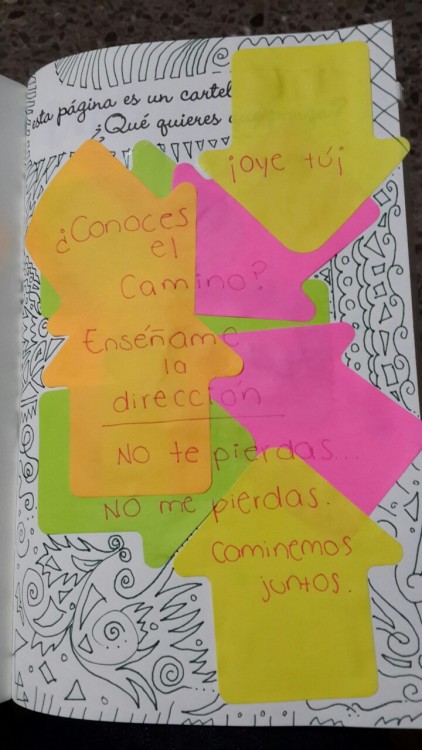 esta página es un cartel
¿Qué quieres
¡oye tú¡
¿Conoces
el
camino?
Enséñame
la
dirección
NO te pierdas...
NO me pierdas.
caminemos
juntos.